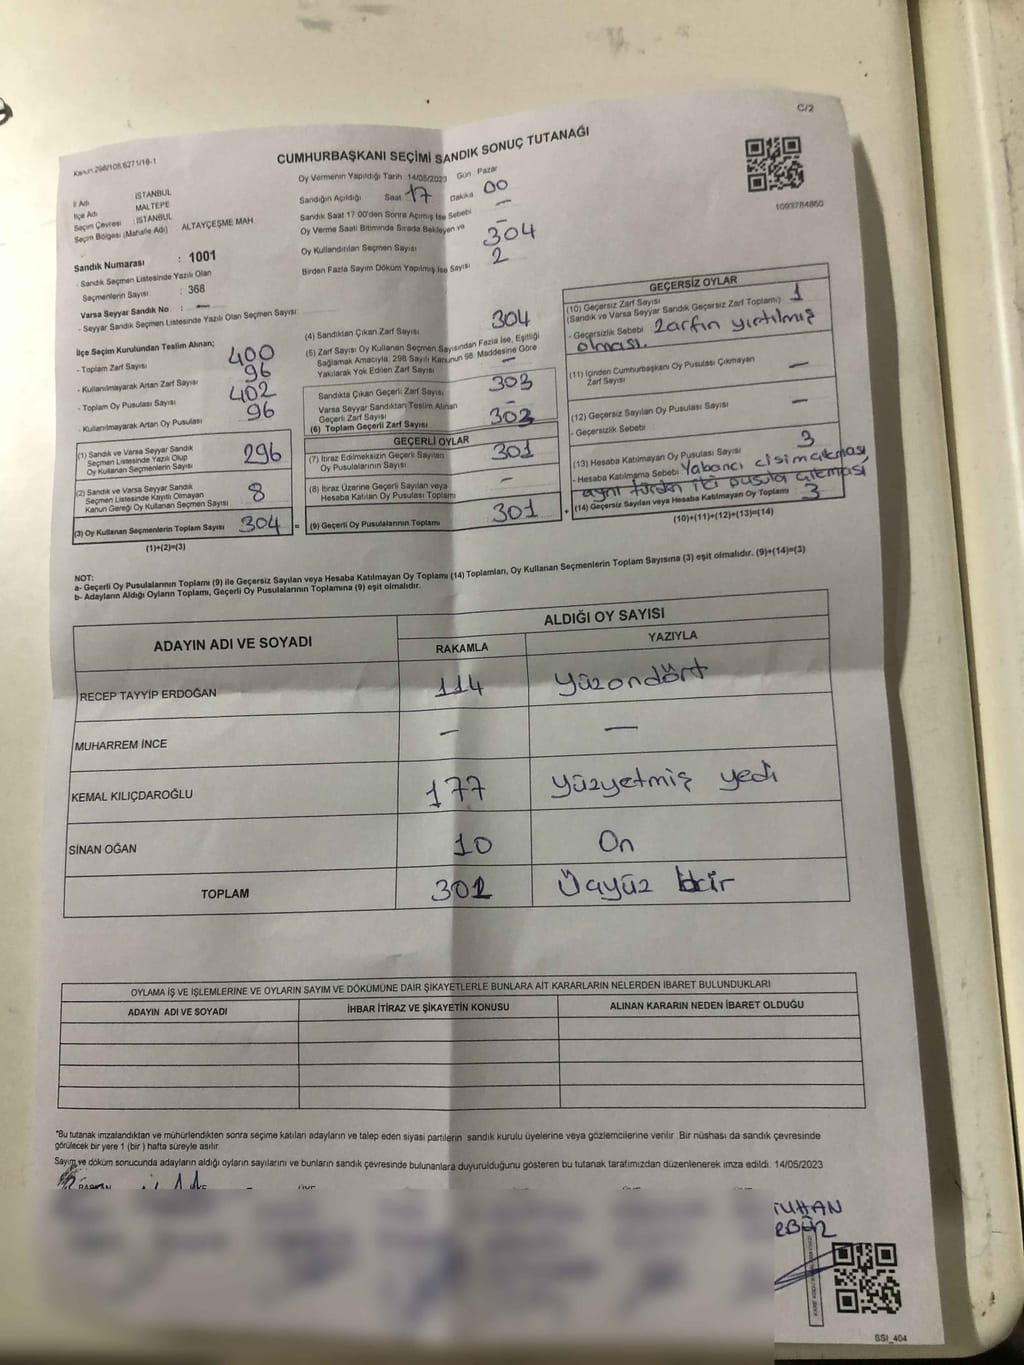 C/2
Kanun 298/105 6271/18-1
CUMHURBAŞKANI SEÇİMİ SANDIK SONUÇ TUTANAĞI
1093784860
İl Adı İSTANBUL
İlçe Adı MALTEPE
Seçim Çevresi : İSTANBUL
Seçim Bölgesi (Mahalle Adı) ALTAYÇEŞME MAH.
Sandık Numarası : 1001
- Sandık Seçmen Listesinde Yazılı Olan
Seçmenlerin Sayısı : 368
Varsa Seyyar Sandık No : -
- Seyyar Sandık Seçmen Listesinde Yazılı Olan Seçmen Sayısı:
Oy Vermenin Yapıldığı Tarih :14/05/2023 Gün : Pazar
Sandığın Açıldığı Saat 17 Dakika 00
Sandık Saat 17 00'den Sonra Açılmış İse Sebebi -
Oy Verme Saati Bitiminde Sırada Bekleyen ve -
Oy Kullandırılan Seçmen Sayısı 304
Birden Fazla Sayım Döküm Yapılmış İse Sayısı 2
İlçe Seçim Kurulundan Teslim Alınan;
- Toplam Zarf Sayısı 400
- Kullanılmayarak Artan Zarf Sayısı 96
- Toplam Oy Pusulası Sayısı 402
- Kullanılmayarak Artan Oy Pusulası 96
(1) Sandık ve Varsa Seyyar Sandık
Seçmen Listesinde Yazılı Olup
Oy Kullanan Seçmenlerin Sayısı 296
(2) Sandık ve Varsa Seyyar Sandık
Seçmen Listesinde Kayıtlı Olmayan
Kanun Gereği Oy Kullanan Seçmen Sayısı 8
(3) Oy Kullanan Seçmenlerin Toplam Sayısı 304 =
(1)+(2)=(3)
(4) Sandıktan Çıkan Zarf Sayısı 304
(5) Zarf Sayısı Oy Kullanan Seçmen Sayısından Fazla İse, Eşitliği
Sağlamak Amacıyla; 298 Sayılı Kanunun 98. Maddesine Göre
Yakılarak Yok Edilen Zarf Sayısı -
Sandıkta Çıkan Geçerli Zarf Sayısı 303
Varsa Seyyar Sandıktan Teslim Alınan
Geçerli Zarf Sayısı -
(6) Toplam Geçerli Zarf Sayısı 303
GEÇERLİ OYLAR
(7) İtiraz Edilmeksizin Geçerli Sayılan
Oy Pusulalarının Sayısı 301
(8) İtiraz Üzerine Geçerli Sayılan veya
Hesaba Katılan Oy Pusulası Toplamı -
(9) Geçerli Oy Pusulalarının Toplamı 301 +
GEÇERSİZ OYLAR
(10) Geçersiz Zarf Sayısı 1
(Sandık ve Varsa Seyyar Sandık Geçersiz Zarf Toplamı)
- Geçersizlik Sebebi Zarfın yırtılmış
olması.
(11) İçinden Cumhurbaşkanı Oy Pusulası Çıkmayan
Zarf Sayısı -
(12) Geçersiz Sayılan Oy Pusulası Sayısı -
- Geçersizlik Sebebi
(13) Hesaba Katılmayan Oy Pusulası Sayısı 3
- Hesaba Katılmama Sebebi Yabancı cisim çıkması,
aynı türden iki pusula çıkması
(14) Geçersiz Sayılan veya Hesaba Katılmayan Oy Toplamı 3
(10)+(11)+(12)+(13)=(14)
NOT:
a- Geçerli Oy Pusulalarının Toplamı (9) ile Geçersiz Sayılan veya Hesaba Katılmayan Oy Toplamı (14) Toplamları, Oy Kullanan Seçmenlerin Toplam Sayısına (3) eşit olmalıdır. (9)+(14)=(3)
b- Adayların Aldığı Oyların Toplamı, Geçerli Oy Pusulalarının Toplamına (9) eşit olmalıdır.
ADAYIN ADI VE SOYADI ALDIĞI OY SAYISI
RAKAMLA YAZIYLA
RECEP TAYYİP ERDOĞAN 114 Yüzondört
MUHARREM İNCE - -
KEMAL KILIÇDAROĞLU 177 Yüzyetmiş yedi
SİNAN OĞAN 10 On
TOPLAM 301 Üçyüz bir
OYLAMA İŞ VE İŞLEMLERİNE VE OYLARIN SAYIM VE DÖKÜMÜNE DAİR ŞİKAYETLERLE BUNLARA AİT KARARLARIN NELERDEN İBARET BULUNDUKLARI
ADAYIN ADI VE SOYADI İHBAR İTİRAZ VE ŞİKAYETİN KONUSU ALINAN KARARIN NEDEN İBARET OLDUĞU
*Bu tutanak imzalandıktan ve mühürlendikten sonra seçime katılan adayların ve talep eden siyasi partilerin sandık kurulu üyelerine veya gözlemcilerine verilir. Bir nüshası da sandık çevresinde
görülecek bir yere 1 (bir) hafta süreyle asılır.
Sayım ve döküm sonucunda adayların aldığı oyların sayılarını ve bunların sandık çevresinde bulunanlara duyurulduğunu gösteren bu tutanak tarafımızdan düzenlenerek imza edildi. 14/05/2023
SSI_404